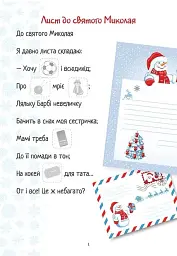 Лист до святого Миколая
До святого Миколая
Я давно листа складаю:
— Хочу і всюдихід;
Про мріє ;
Ляльку Барбі невеличку
Бачить в снах моя сестричка;
Мамі треба
До її помади в тон;
На хокей для тата...
От і все! Це ж небагато?
1